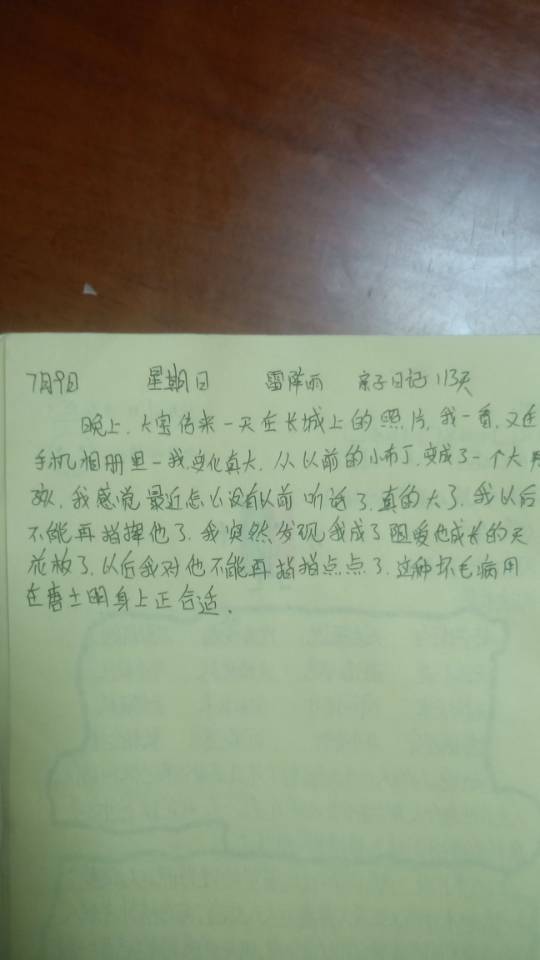 7月9日 星期日 雷阵雨 亲子日记113天
晚上,大宝传来一天在长城上的照片,我一看,又在
手机相册里一找,变化真大,从以前的小布丁,变成了一个大男
孩,我感觉最近怎么没有以前听话了,真的大了,我以后
不能再指挥他了,我突然发现我成了阻爱他成长的天
花板了,以后我对他不能再指指点点了,这种坏毛病用
在唐土明身上正合适.